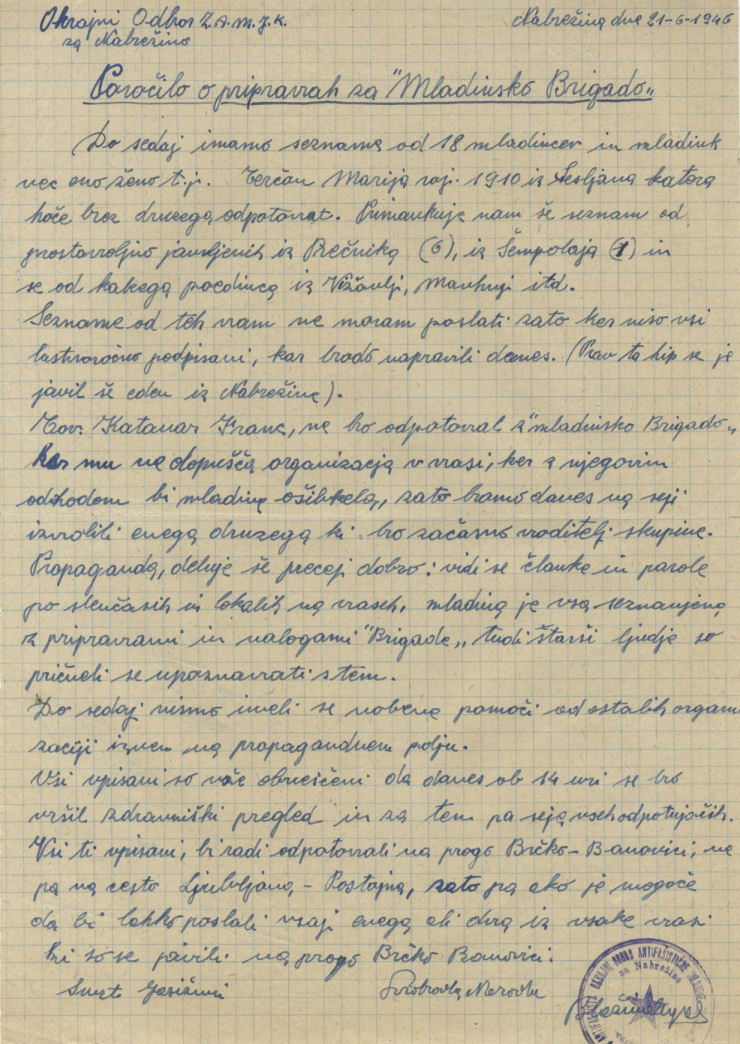 Okrajni Odbor Z.A.M.J.K.
za Nabrežino
Nabrežina dne 21-6-1946
Poročilo o pripravah za "Mladinsko Brigado"
Do sedaj imamo sezname od 18 mladincev in mladink
več eno ženo t.j. Terčon Marija roj. 1910 iz Sesljana katera
hoče brez druzega odpotovat. Primankuje nam še seznam od
prostovoljno javljenih iz Prečnika (6), iz Šempolaja (1) in
še od kakega poedinca iz Vižovlji, Mavhnji itd.
Sezname od teh vam ne moram poslati zato ker niso vsi
lastnoročno podpisani, kar bodo napravili danes. (Prav ta hip se je
javil še eden iz Nabrežine).
Tov. Katanar Franc, ne bo odpotoval z "mladinsko Brigado"
ker mu ne dopušča organizacija v vasi, ker z njegovim
odhodom bi mladina ošibkela, zato bamo danes na seji
izvolili enega druzega ki bo začasno voditelj skupine.
Propaganda, deluje še precej dobro: vidi se članke in parole
po stenčasih in lokalih na vaseh, mladina je vsa seznanjena
z pripravami in nalogami "Brigade" tudi starši ljudje so
pričneli se upoznavati s tem.
Do sedaj nismo imeli še nobene pomoči od ostalih organi
zaciji izven na propagandnem polju.
Vsi vpisani so vže obveščeni da danes ob 14 uri se bo
vršil zdravniški pregled in za tem pa seja vseh odpotujočih.
Vsi ti vpisani, bi radi odpotovali na progo Brčko-Banovici, ne
pa na cesto Ljubljana,- Postojna, zato pa ako je mogoče
da bi lahko poslali vsaj enega ali dva iz vsake vasi
ki so se javili na progo Brčko Banovici.
Smrt fašizmu
Svoboda Narodu
za Nabrežino